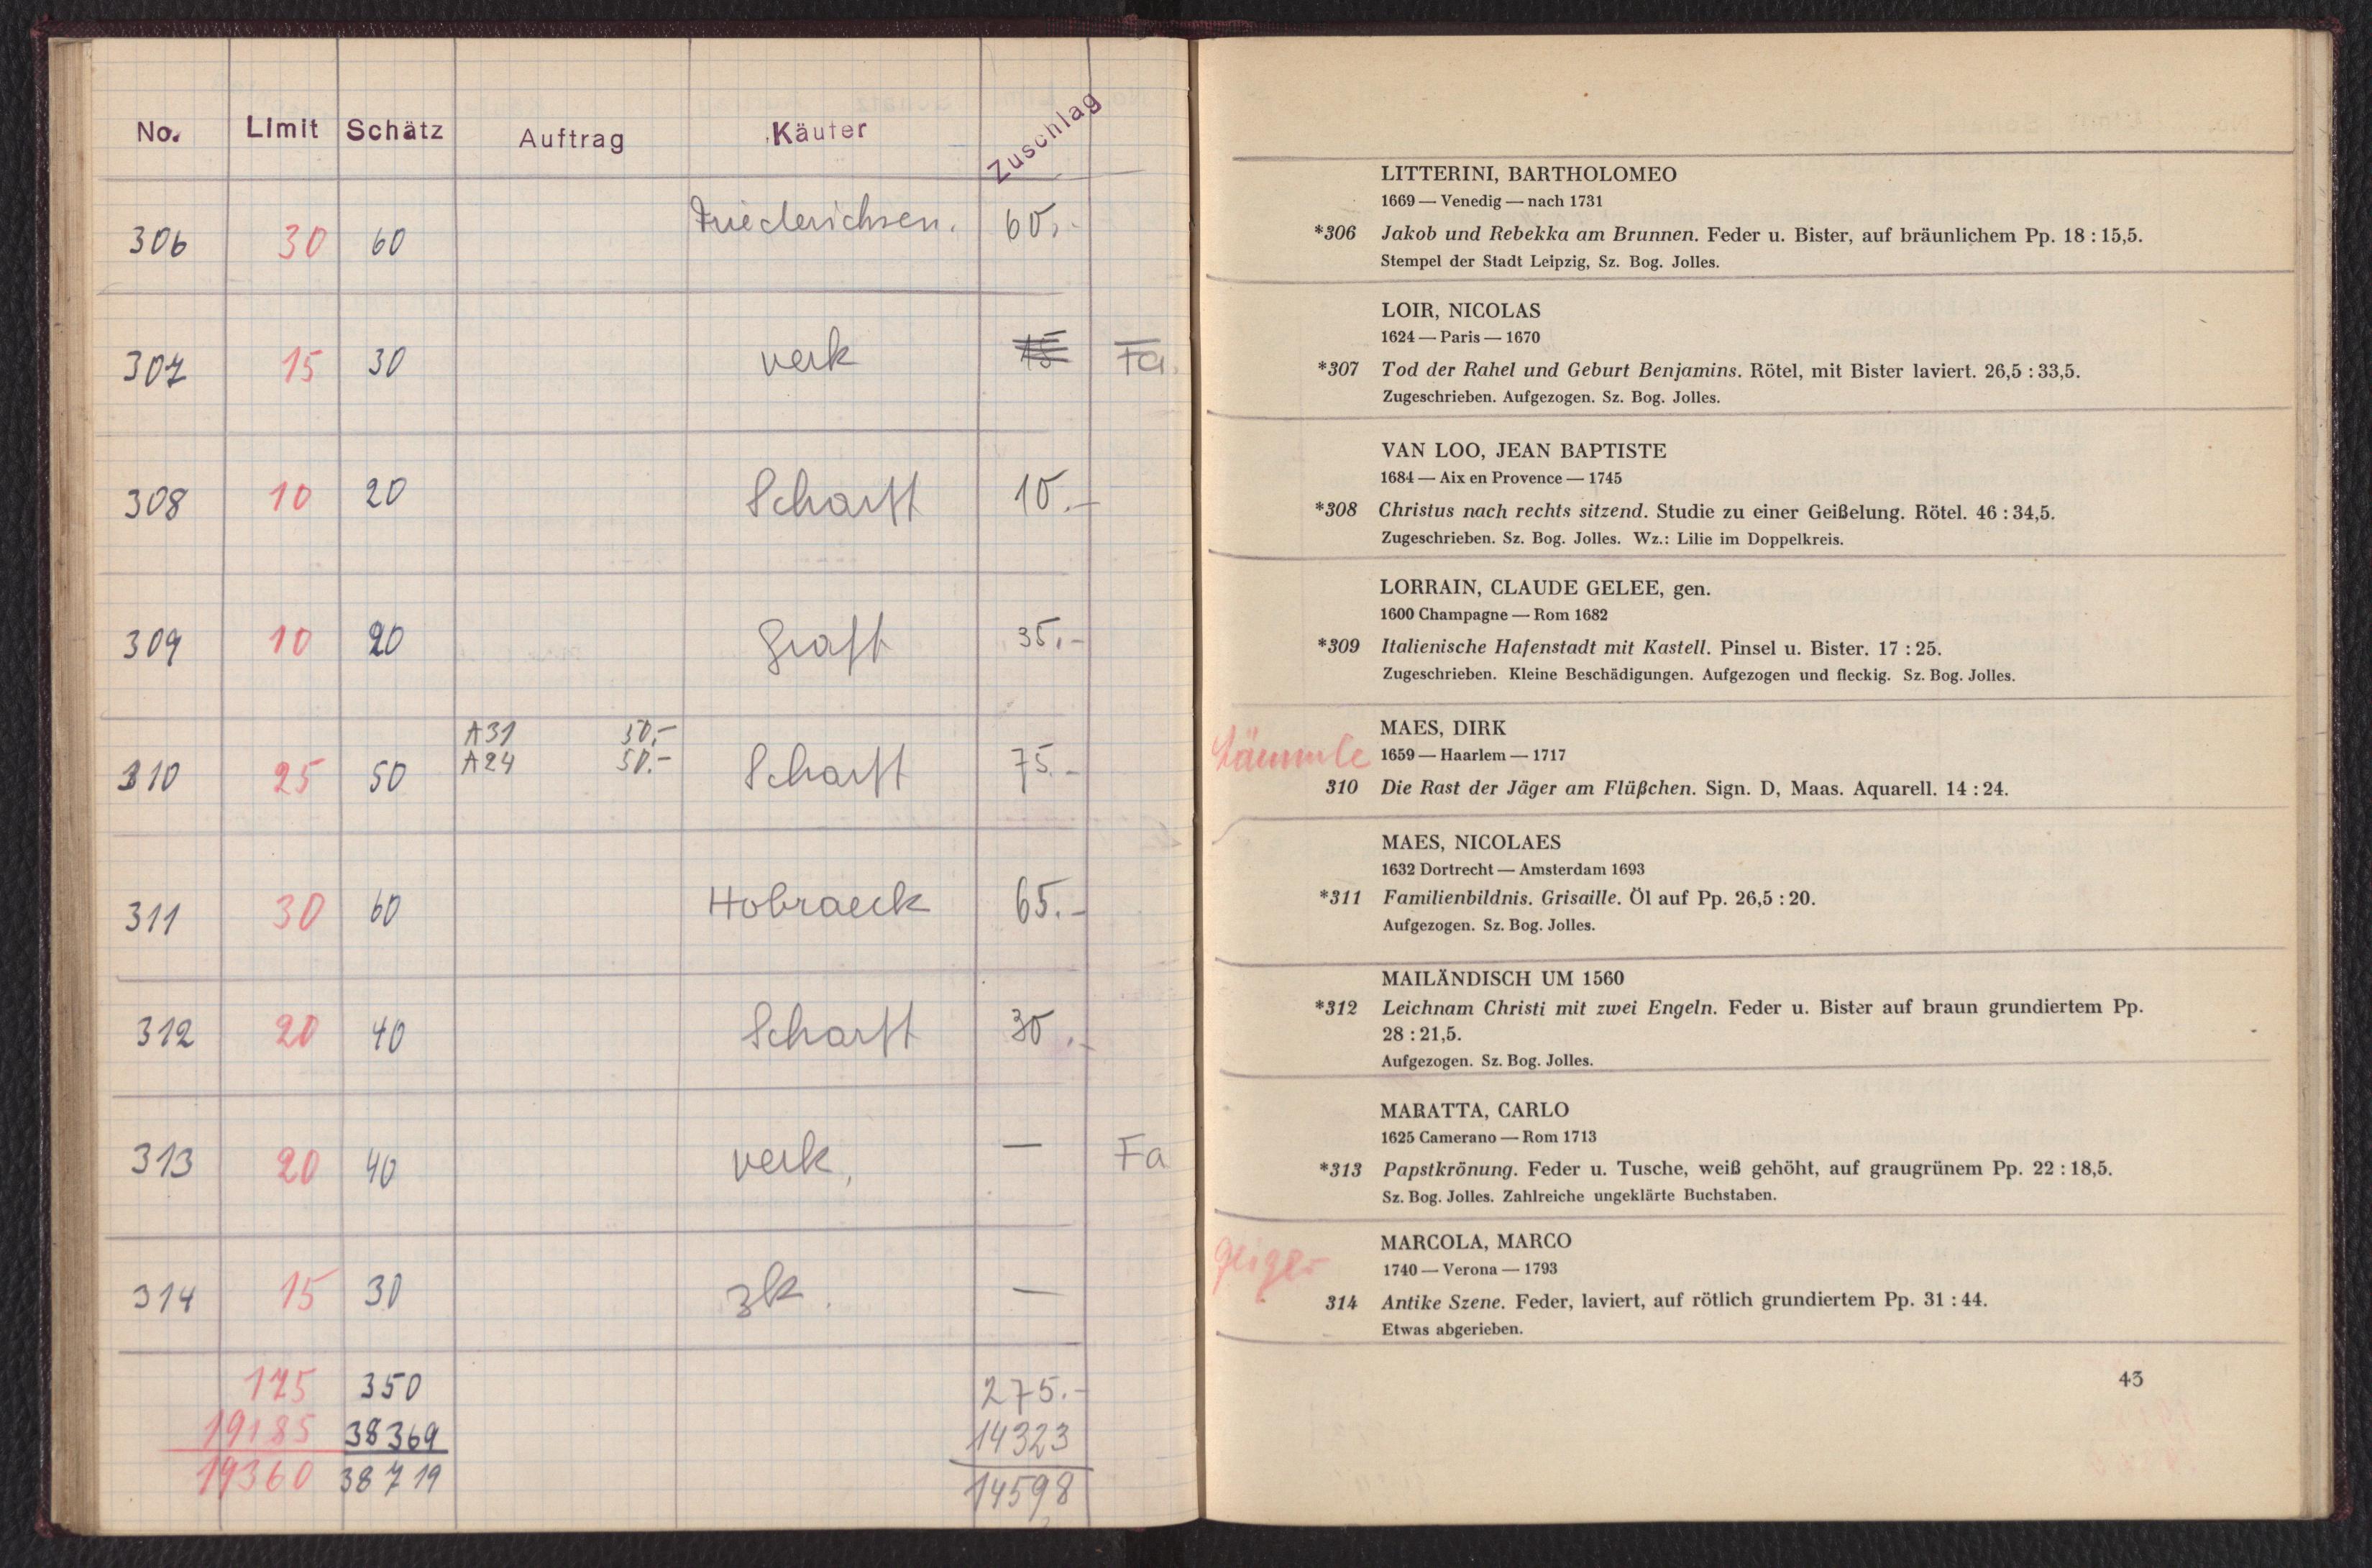 No. Limit Schätz Auftrag Käufer Zuschlag
306 30 60 Friederichsen. 60,-
307 15 30 verk 15 Fa.
308 10 20 Scharff 10.-
309 10 20 Graff 35,-
A31 30,-
A24 50.-
310 25 50 Scharff 75.-
311 30 60 Hobraeck 65.-
312 20 40 Scharff 30.-
313 20 40 verk, — Fa
314 15 30 zk. —
175 350 275.-
19185 38369 14323
19360 38719 14598
LITTERINI, BARTHOLOMEO
1669 — Venedig — nach 1731
*306 Jakob und Rebekka am Brunnen. Feder u. Bister, auf bräunlichem Pp. 18 : 15,5.
Stempel der Stadt Leipzig, Sz. Bog. Jolles.
LOIR, NICOLAS
1624 — Paris — 1670
*307 Tod der Rahel und Geburt Benjamins. Rötel, mit Bister laviert. 26,5 : 33,5.
Zugeschrieben. Aufgezogen. Sz. Bog. Jolles.
VAN LOO, JEAN BAPTISTE
1684 — Aix en Provence — 1745
*308 Christus nach rechts sitzend. Studie zu einer Geißelung. Rötel. 46 : 34,5.
Zugeschrieben. Sz. Bog. Jolles. Wz.: Lilie im Doppelkreis.
LORRAIN, CLAUDE GELEE, gen.
1600 Champagne — Rom 1682
*309 Italienische Hafenstadt mit Kastell. Pinsel u. Bister. 17 : 25.
Zugeschrieben. Kleine Beschädigungen. Aufgezogen und fleckig. Sz. Bog. Jolles.
MAES, DIRK
1659 — Haarlem — 1717
310 Die Rast der Jäger am Flüßchen. Sign. D, Maas. Aquarell. 14 : 24.
MAES, NICOLAES
1632 Dortrecht — Amsterdam 1693
*311 Familienbildnis. Grisaille. Öl auf Pp. 26,5 : 20.
Aufgezogen. Sz. Bog. Jolles.
MAILÄNDISCH UM 1560
*312 Leichnam Christi mit zwei Engeln. Feder u. Bister auf braun grundiertem Pp.
28 : 21,5.
Aufgezogen. Sz. Bog. Jolles.
MARATTA, CARLO
1625 Camerano — Rom 1713
*313 Papstkrönung. Feder u. Tusche, weiß gehöht, auf graugrünem Pp. 22 : 18,5.
Sz. Bog. Jolles. Zahlreiche ungeklärte Buchstaben.
Geiger
MARCOLA, MARCO
1740 — Verona — 1793
314 Antike Szene. Feder, laviert, auf rötlich grundiertem Pp. 31 : 44.
Etwas abgerieben.
43